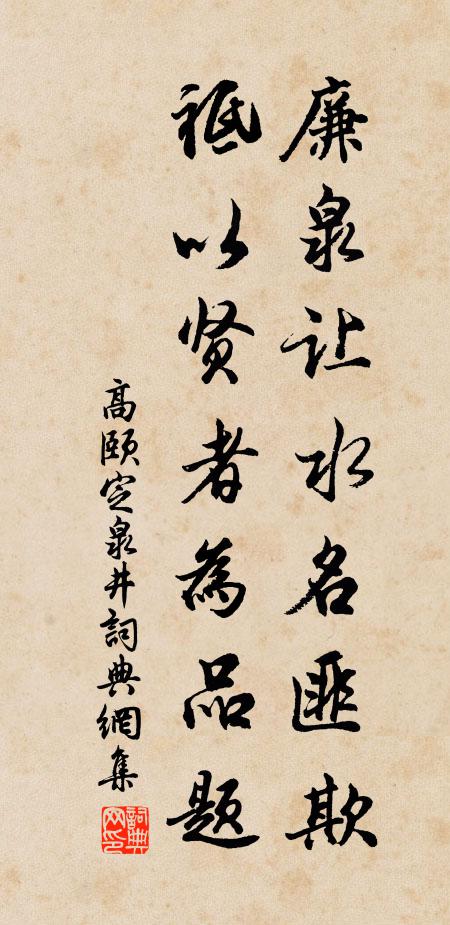 廉泉让水名匪欺
祗以贤者為品题
高颐定泉井詞典網集
詞典网印